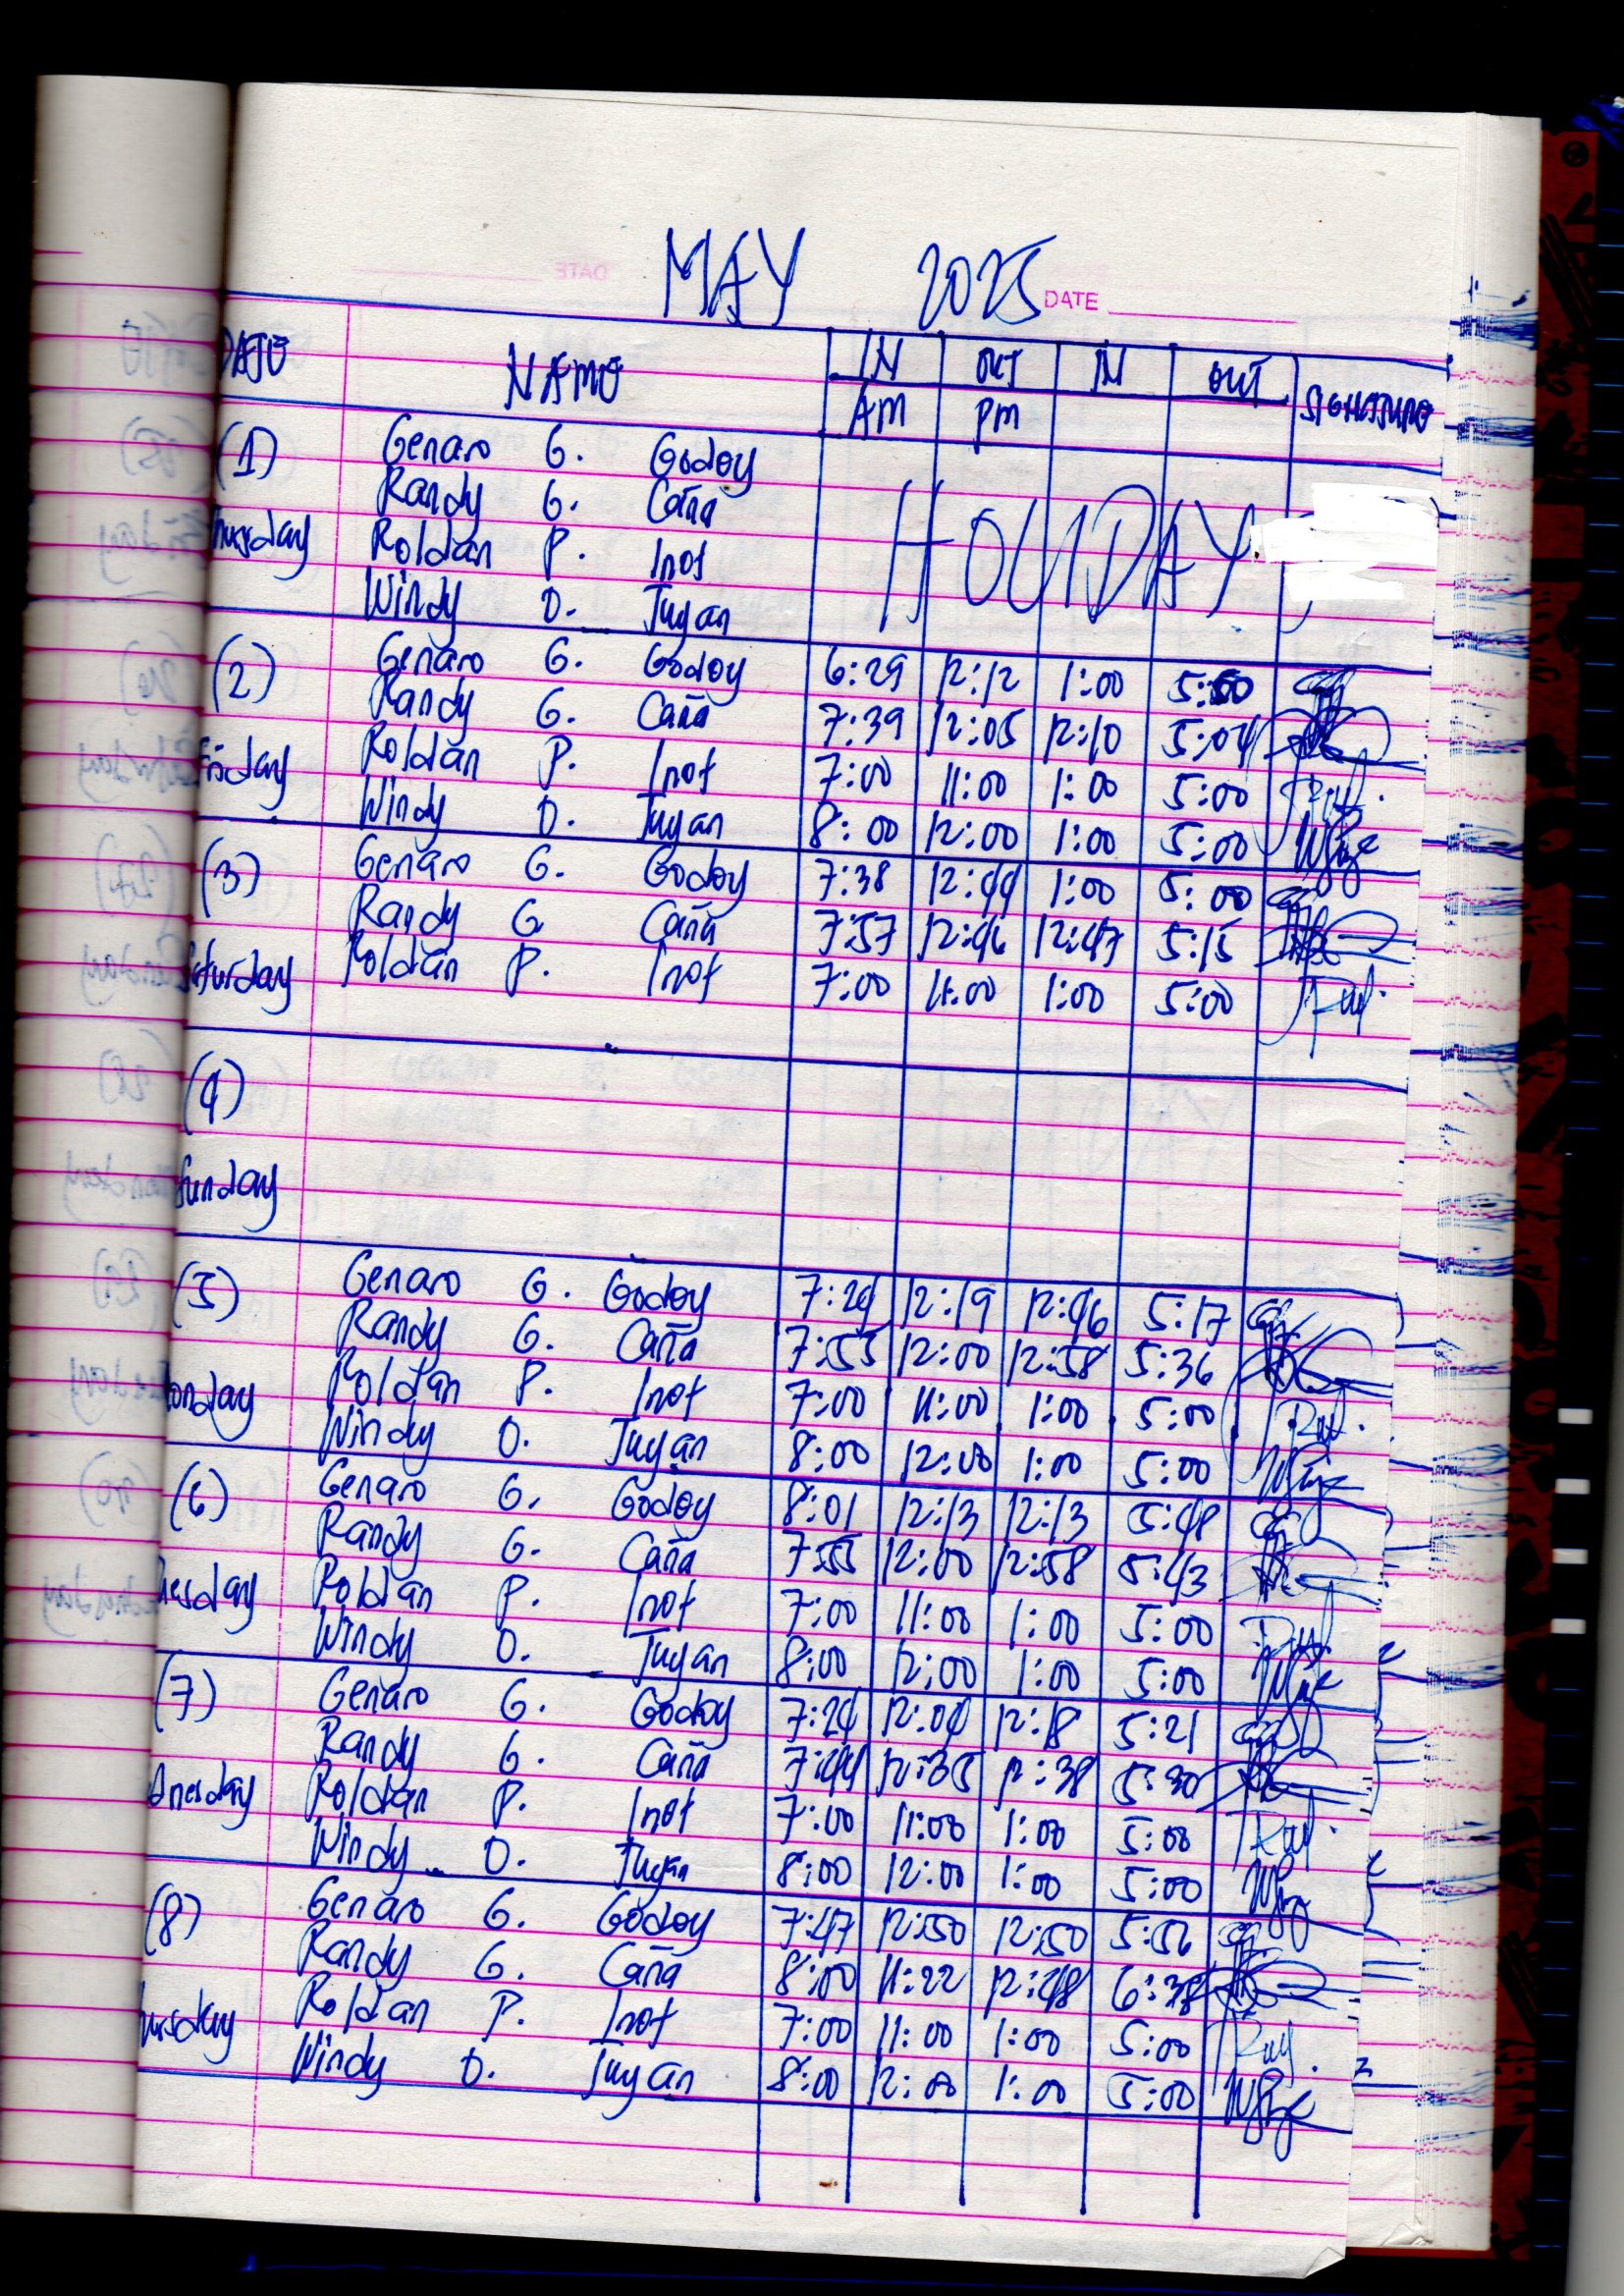 MAY 2025 DATE
DATE NAME IN OUT IN OUT SIGNATURE
AM PM
(1) Genaro G. Godoy
Randy G. Caña
Thursday Roldan P. Inot HOLIDAY
Windy O. Tuyan
(2) Genaro G. Godoy 6:29 12:12 1:00
Randy G. Caña 7:39 12:05 12:10 5:04
Friday Roldan P. Inot 7:00 11:00 1:00 5:00
Windy O. Tuyan 8:00 12:00 1:00 5:00
(3) Genaro G. Godoy 7:38 12:44 1:00 5:00
Randy G Caña 7:57 12:46 12:47 5:15
Saturday Roldan P. Inot 7:00 11:00 1:00 5:00
(4)
Sunday
(5) Genaro G. Godoy 7:24 12:19 12:46 5:17
Randy G. Caña 7:55 12:00 12:58 5:36
Monday Roldan P. Inot 7:00 11:00 1:00 5:00
Windy O. Tuyan 8:00 12:00 1:00 5:00
(6) Genaro G. Godoy 8:01 12:13 12:13 5:48
Randy G. Caña 7:55 12:00 12:58 5:43
Tuesday Roldan P. Inot 7:00 11:00 1:00 5:00
Windy O. Tuyan 8:00 12:00 1:00 5:00
(7) Genaro G. Godoy 7:24 12:04 12:18 5:21
Randy G. Caña 7:44 12:35 12:38 5:30
Roldan P. Inot 7:00 11:00 1:00 5:00
Windy O. Tuyan 8:00 12:00 1:00 5:00
(8) Genaro G. Godoy 7:47 12:50 12:50 5:56
Randy G. Caña 8:00 11:22 12:48
Thursday Roldan P. Inot 7:00 11:00 1:00 5:00
Windy O. Tuyan 8:00 12:00 1:00 5:00